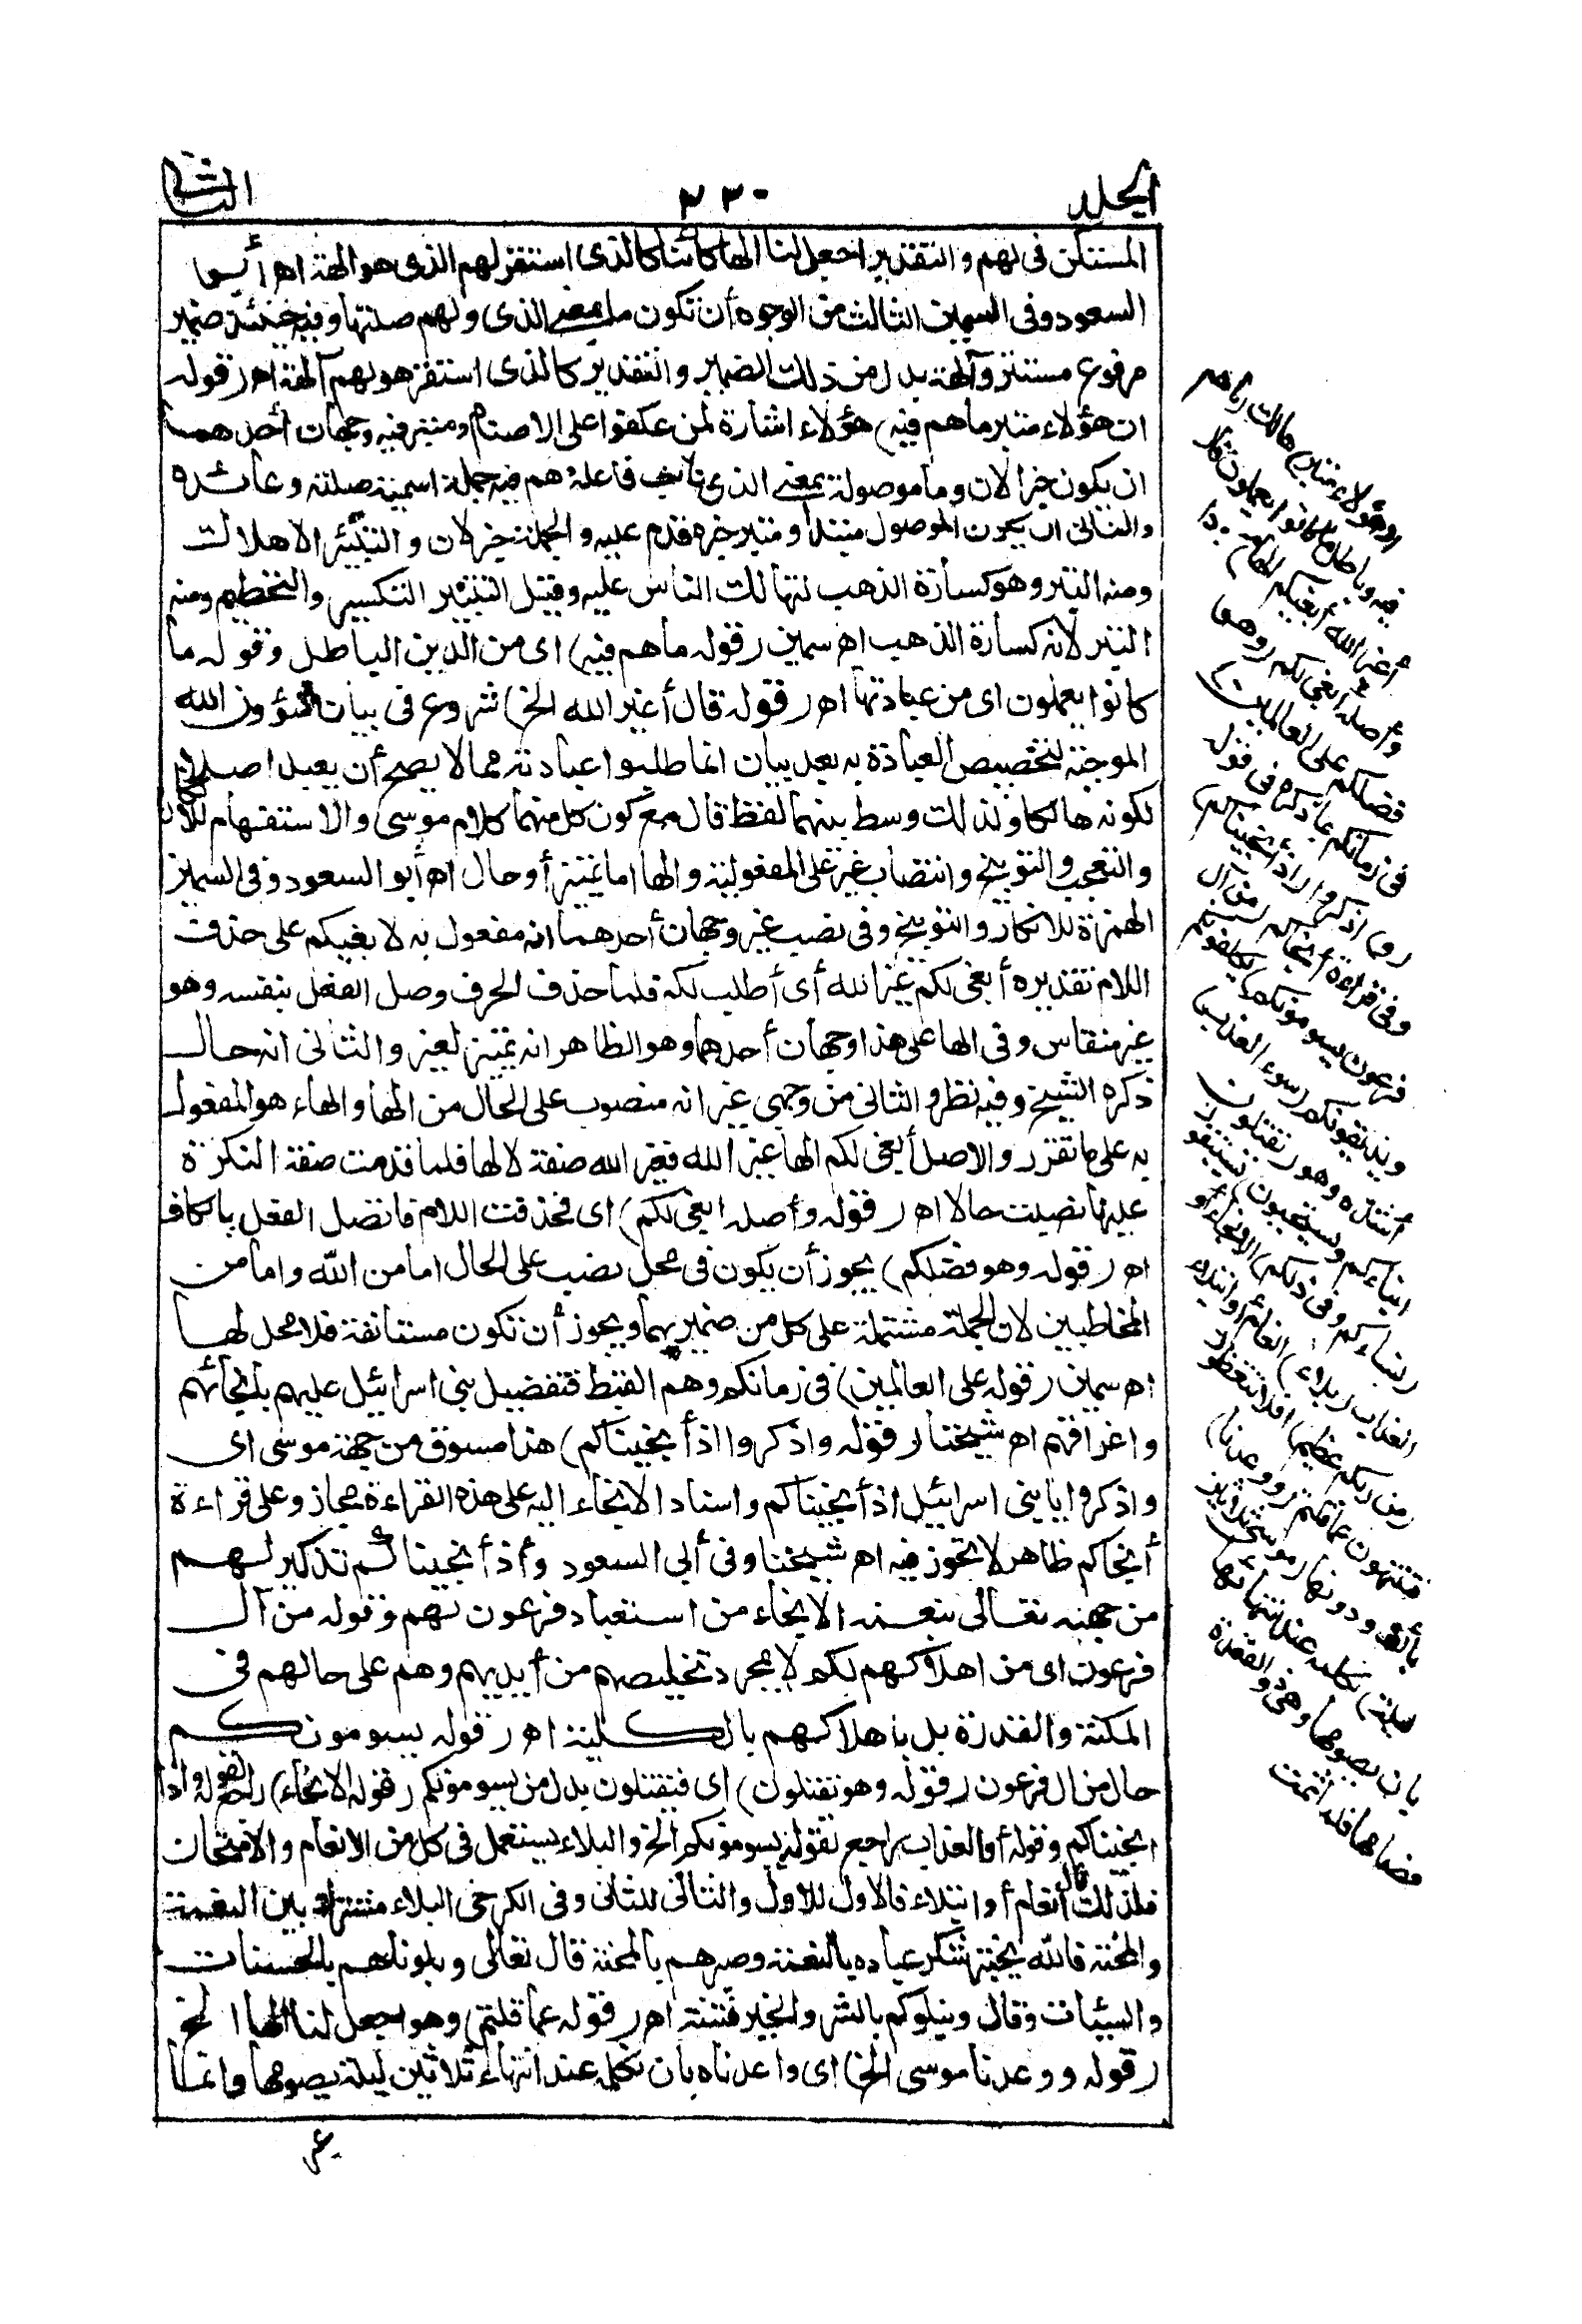 الجلد
٢٣٠
الثانى
المستكن فى لهم والتقدير اجعل لنا الها كائنا كالذى استقر لهم الذى هو الهة اهـ أبـو
السعود وفى السمين الثالث من الوجوه أن تكون ما بمعنى الذى ولهم صلتها وفيه حينئذ ضمير
مرفوع مستتر وآلهة بدل من ذلك الضمير والتقدير كالذى استقر هو لهم آلهة اهـ (قوله
ان هؤلاء متبر ما هم فيه) هؤلاء اشارة لمن عكفوا على الاصنام ومتبر فيه وجهان أحدهما
ان يكون خبرا لان وما موصولة بمعنى الذى نائب فاعله هم فيه جملة اسمية صلته وعائده
والثانى ان يكون الموصول مبتدأ ومتبر خبره قدم عليه والجملة خبر لان والتتبير الاهلاك
ومنه التبر وهو كسارة الذهب لتهالك الناس عليه وقيل التتبير التكسير والتحطيم ومنه
التبر لانه كسارة الذهب اهـ سمين (قوله ما هم فيه) اى من الدين الباطل وقوله ما
كانوا يعملون اى من عبادتها اهـ (قوله قال أغير الله الخ) شروع فى بيان شؤون الله
الموجبة لتخصيص العبادة به بعد بيان انما طلبوا عبادته مما لا يصح أن يعبد اصلا
لكونه هالكا ولذلك وسط بينهما لفظ قال مع كون كل منهما كلام موسى والاستفهام للانكار
والتعجب والتوبيخ وانتصاب غير على المفعولية والها اما تمييز أو حال اهـ أبو السعود وفى السمين
الهمزة للانكار والتوبيخ وفى نصب غير وجهان أحدهما انه مفعول به لابغيكم على حذف
اللام تقديره أبغى لكم غير الله أى أطلب لكم فلما حذف الحرف وصل الفعل بنفسه وهو
غير منقاس وفى الها على هذا وجهان أحدهما وهو الظاهر انه تمييز لغير والثانى انه حال
ذكره الشيخ وفيه نظر والثانى من وجهى غير انه منصوب على الحال من الها والهاء هو المفعول
به على ما تقرر والاصل أبغى لكم الها غير الله فغير الله صفة لالها فلما قدمت صفة النكرة
عليها نصبت حالا اهـ (قوله وأصله ابغى لكم) اى فحذفت اللام فاتصل الفعل بالكاف
اهـ (قوله وهو فضلكم) يجوز أن يكون فى محل نصب على الحال اما من الله واما من
المخاطبين لان الجملة مشتملة على كل من ضميريهما ويجوز أن تكون مستانفة فلا محل لها
اهـ سمين (قوله على العالمين) فى زمانكم وهم القبط فتفضيل بنى اسرائيل عليهم بانجائهم
واغراقهم اهـ شيخنا (قوله واذكروا اذ أنجيناكم) هذا مسوق من جهة موسى اى
واذكروا يا بنى اسرائيل اذ أنجيناكم واسناد الانجاء اليه على هذه القراءة مجاز وعلى قراءة
أنجاكم ظاهر لا تجوز فيه اهـ شيخنا وفى أبى السعود واذ أنجيناكم تذكير لهم
من جهته تعالى بنعمة الانجاء من استعباد فرعون لهم وقوله من آل
فرعون اى من اهلاكهم لكم لا بمجرد تخليصهم من أيديهم وهم على حالهم فى
المكنة والقدرة بل باهلاكهم بالكلية اهـ (قوله يسومونكم
حال من ال فرعون (قوله وهو تقتلون) اى فتقتلون بدل من يسومونكم (قوله الانجاء) راجع لقوله واذ
انجيناكم وقوله أو العذاب راجع لقوله يسومونكم الخ والبلاء يستعمل فى كل من الانعام والامتحان
فلذلك قال انعام أو ابتلاء فالاول للاول والثانى للثانى وفى الكرخى البلاء مشترك بين النعمة
والمحنة فالله يختبر شكر عباده بالنعمة وصبرهم بالمحنة قال تعالى وبلوناهم بالحسنات
والسيئات وقال ونبلوكم بالشر والخير فتنة اهـ (قوله عما قلتم) وهو اجعل لنا الها الخ
(قوله ووعدنا موسى الخ) اى واعدناه بان نكلمه عند انتهاء ثلاثين ليلة يصومها وانما
(ان هؤلاء متبر) هالك (ما هم
فيه وباطل ما كانوا يعملون قال
أغير الله أبغيكم الها) معبودا
وأصله أبغى لكم (وهو
فضلكم على العالمين)
فى زمانكم بما ذكره فى قوله
(و) اذكروا (اذ أنجيناكم)
وفى قراءة أنجاكم (من آل
فرعون يسومونكم) يكلفونكم
ويذيقونكم (سوء العذاب)
أشده وهو (يقتلون
ابناءكم ويستحيون) يستبقون
(نساءكم وفى ذلكم) الانجاء أو
العذاب (بلاء) انعام أو ابتلاء
(من ربكم عظيم) افلا تتعظون
فتنتهون عما قلتم (ووعدنا)
بألف ودونها (موسى ثلاثين
ليلة) نكلمه عند انتهائها
بان يصومها وهى ذو القعدة
فصامها فلما تمت